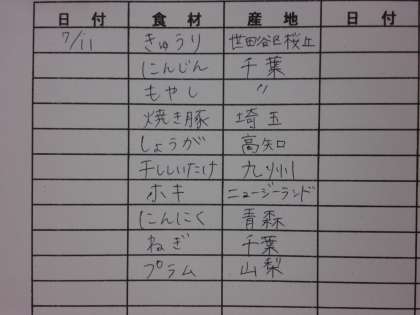 日付 食材 産地 日付
7/11 きゅうり 世田谷区桜丘
にんじん 千葉
もやし 〃
焼き豚 埼玉
しょうが 高知
干ししいたけ 九州
ホキ ニュージーランド
にんにく 青森
ねぎ 千葉
プラム 山梨